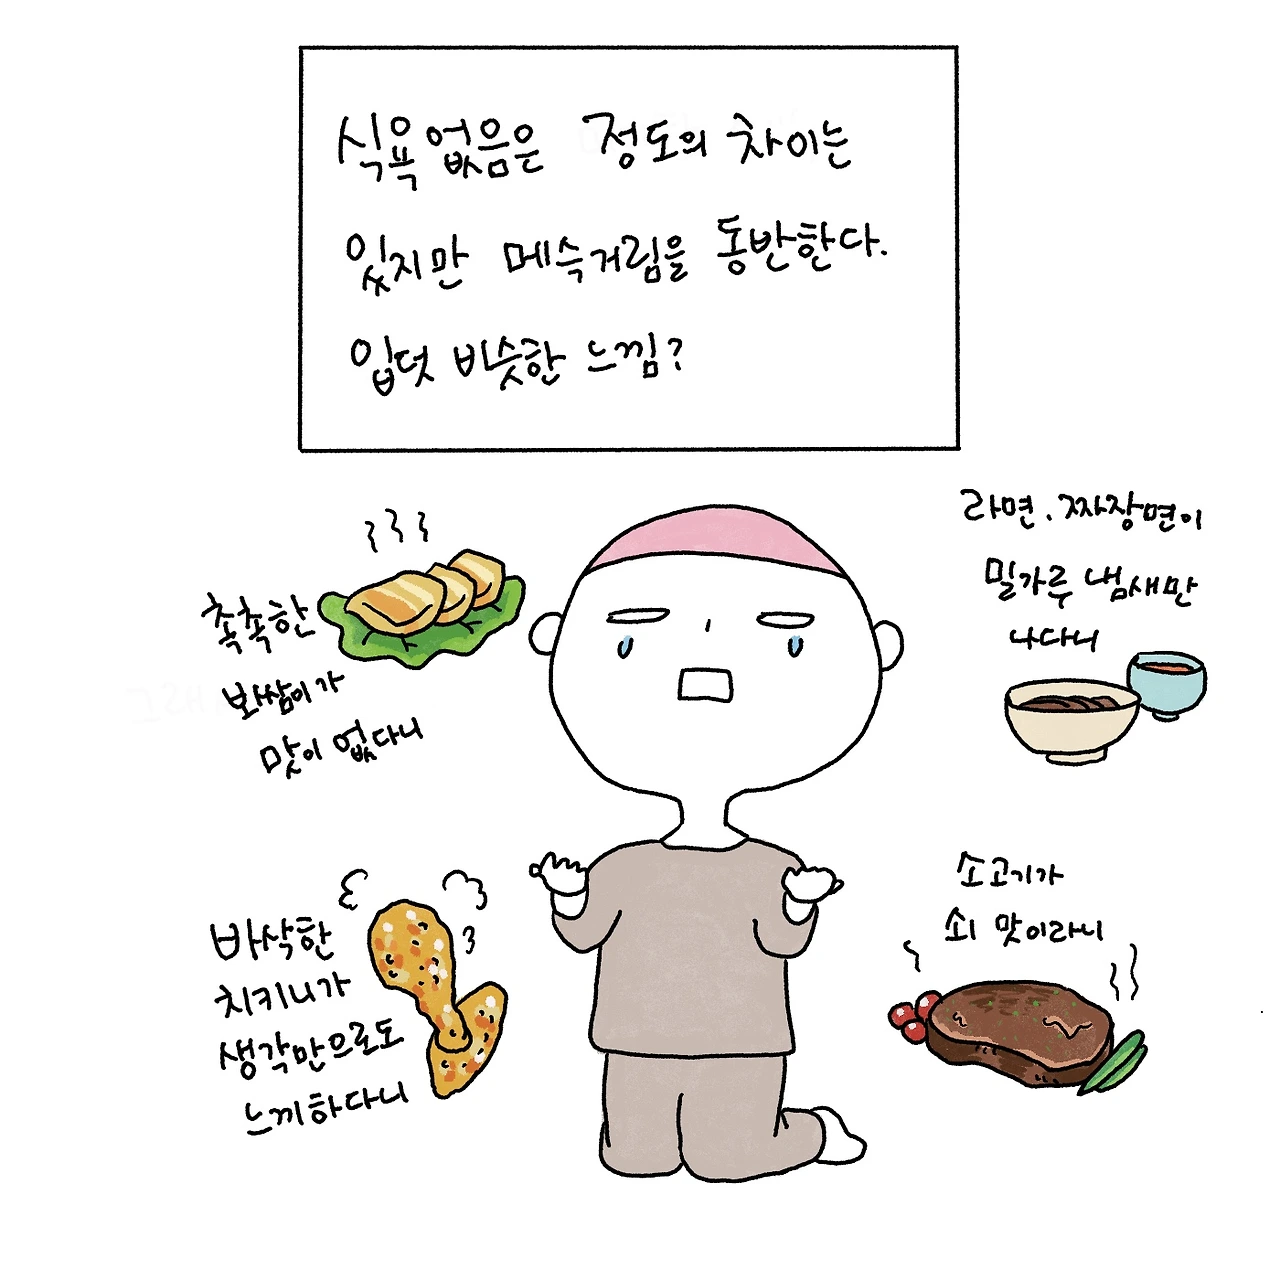 식욕 없음은 정도의 차이는
있지만 메슥거림을 동반한다.
입덧 비슷한 느낌?
촉촉한
보쌈이가
맛이 없다니
라면. 짜장면이
밀가루 냄새만
나다니
바삭한
치키니가
생각만으로도
느끼하다니
소고기가
쇠 맛이라니